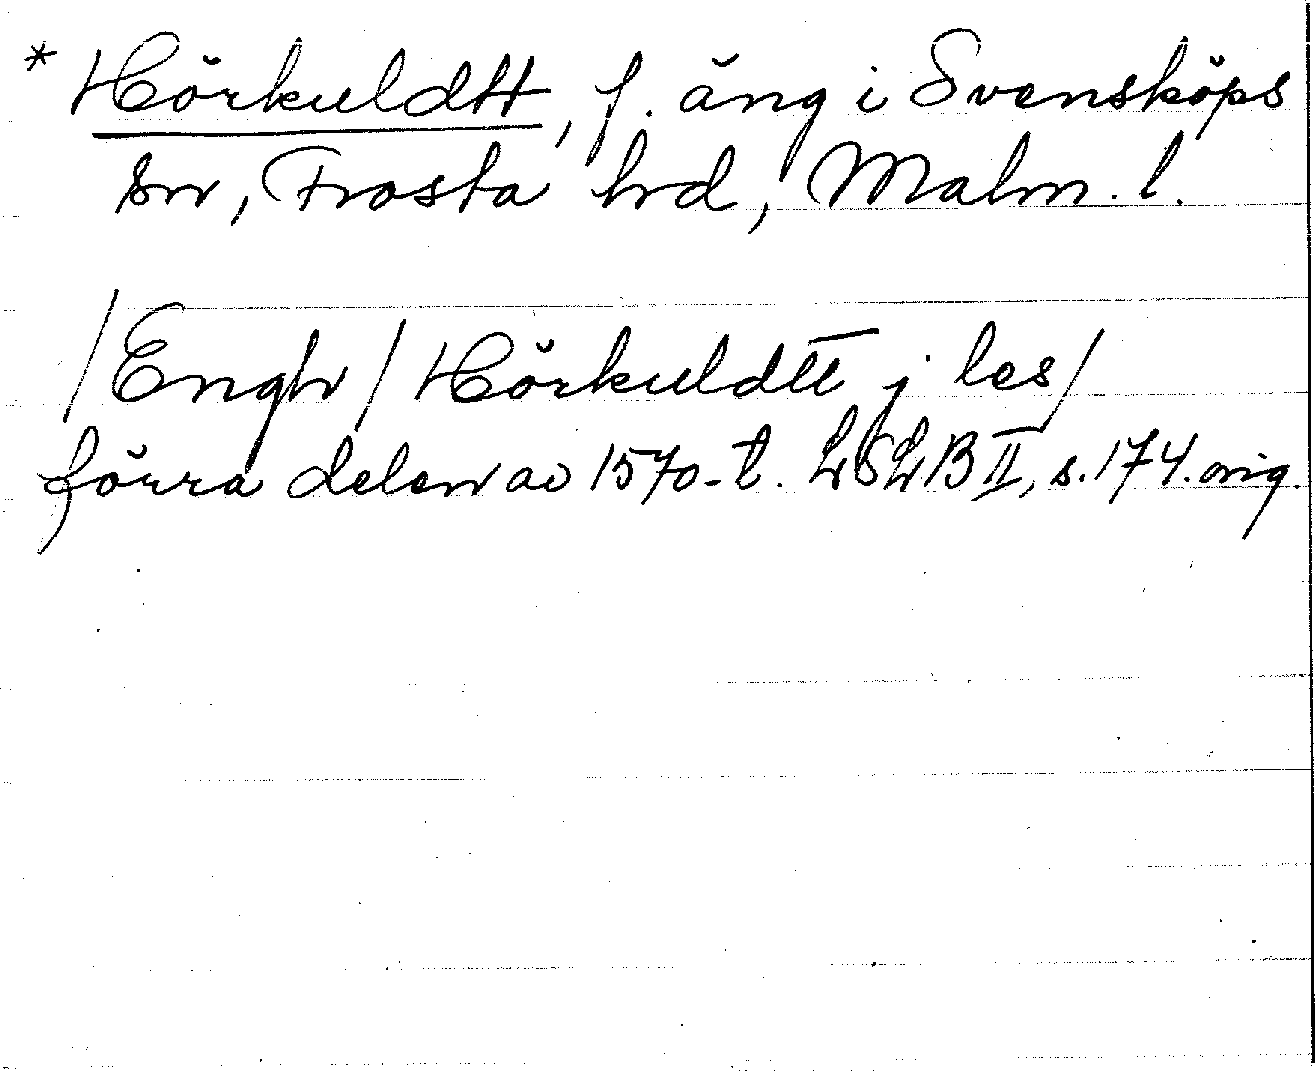 * Hörkuldtt, f. äng i Svensköps
sn, Frosta hd, Malm. l.
/Engh/ Hörkuldtt j les/
förra delen av 1570-t. LSLB II, s. 174. orig.